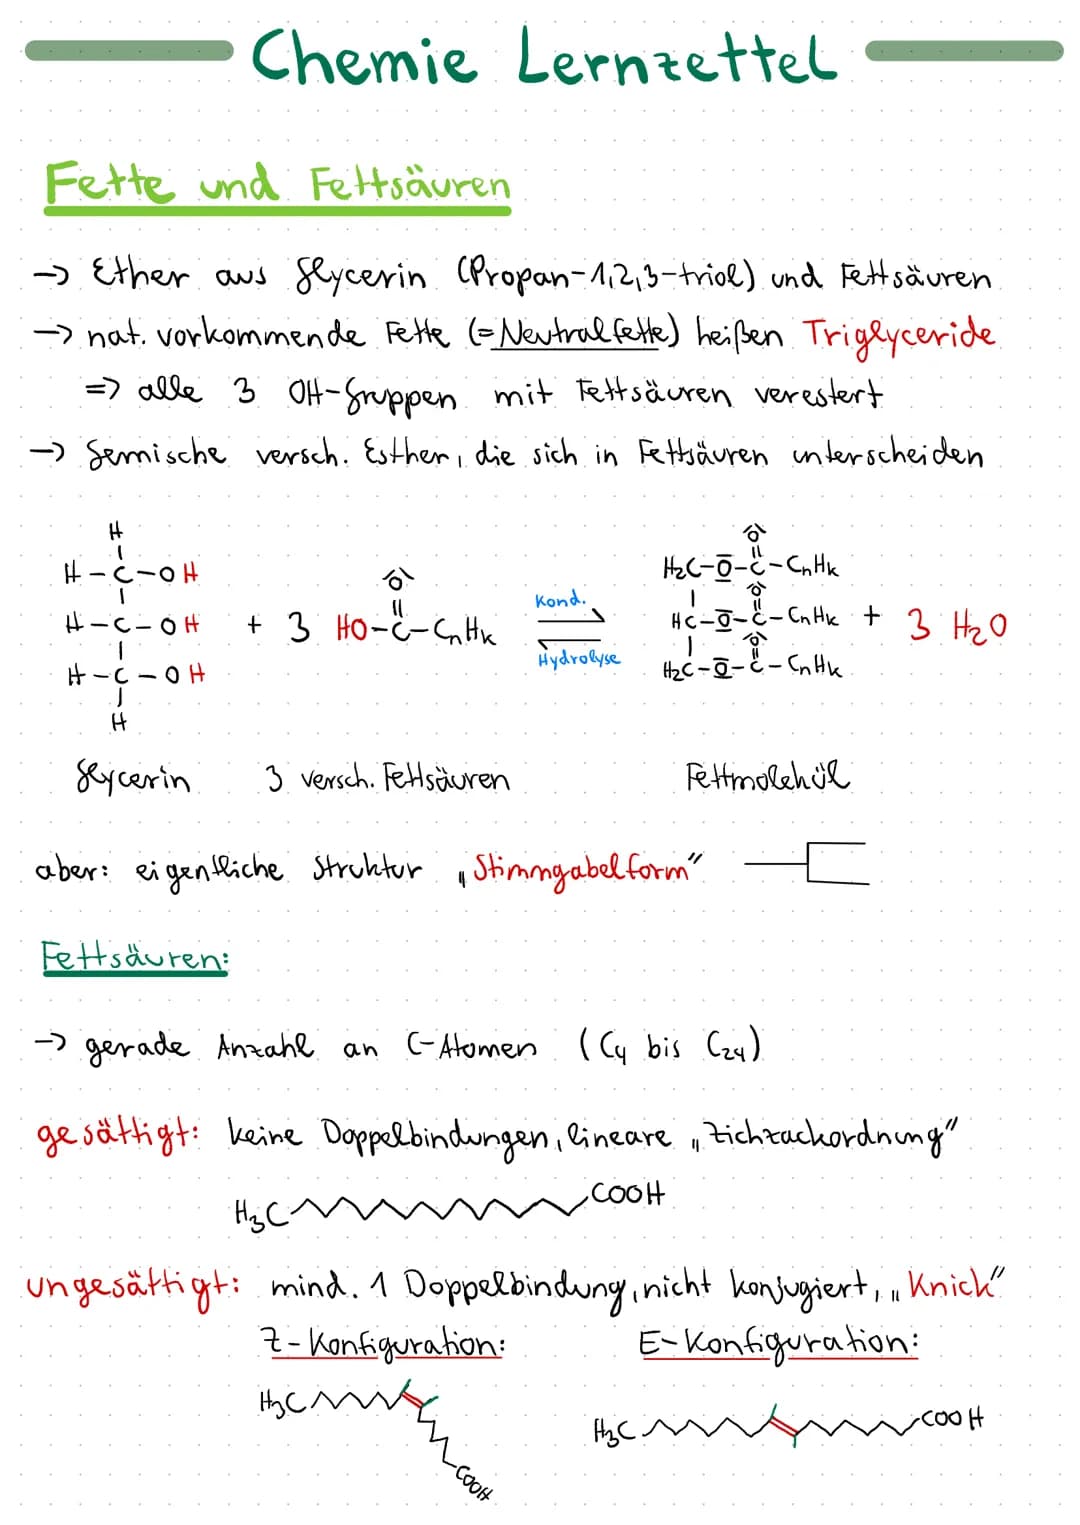 Chemie Lernzettel
Fette und Fettsäuren
-> Ether aus Glycerin (Propan-1,2,3-triol) und Fettsäuren
-> nat. vorkommende Fette (=Neutralfette) heißen Triglyceride
=> alle 3 OH-Gruppen mit Fettsäuren verestert
-> Gemische versch. Esther, die sich in Fettsäuren unterscheiden
H
H-C-OH
H-C-OH
H-C-OH
H
+ 3 HO-C-CnHk
O
Kond.
Hydrolyse
O
H2C-O-C-CnHk
O
HC-O-C-CnHk + 3 H2O
O
H2C-O-C-CnHk
Glycerin 3 versch. Fettsäuren Fettmolekül
aber: eigentliche Struktur „Stimmgabelform"
Fettsäuren:
-> gerade Anzahl an C-Atomen (C4 bis C24)
gesättigt: keine Doppelbindungen, lineare „Zichzackordnung"
H3C COOH
ungesättigt: mind. 1 Doppelbindung, nicht konjugiert, „Knick"
Z-Konfiguration: E-Konfiguration:
H3C COOH
H3C COOH